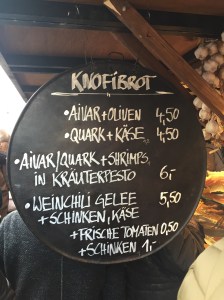 KNOFIBROT
• AIVAR+OLIVEN 4,50
• QUARK+KÄSE 4,50
• AIVAR/QUARK+SHRIMPS
IN KRÄUTERPESTO 6,-
• WEINCHILI GELEE 5,50
+ SCHINKEN, KÄSE
+ FRISCHE TOMATEN 0,50
+ SCHINKEN 1,-